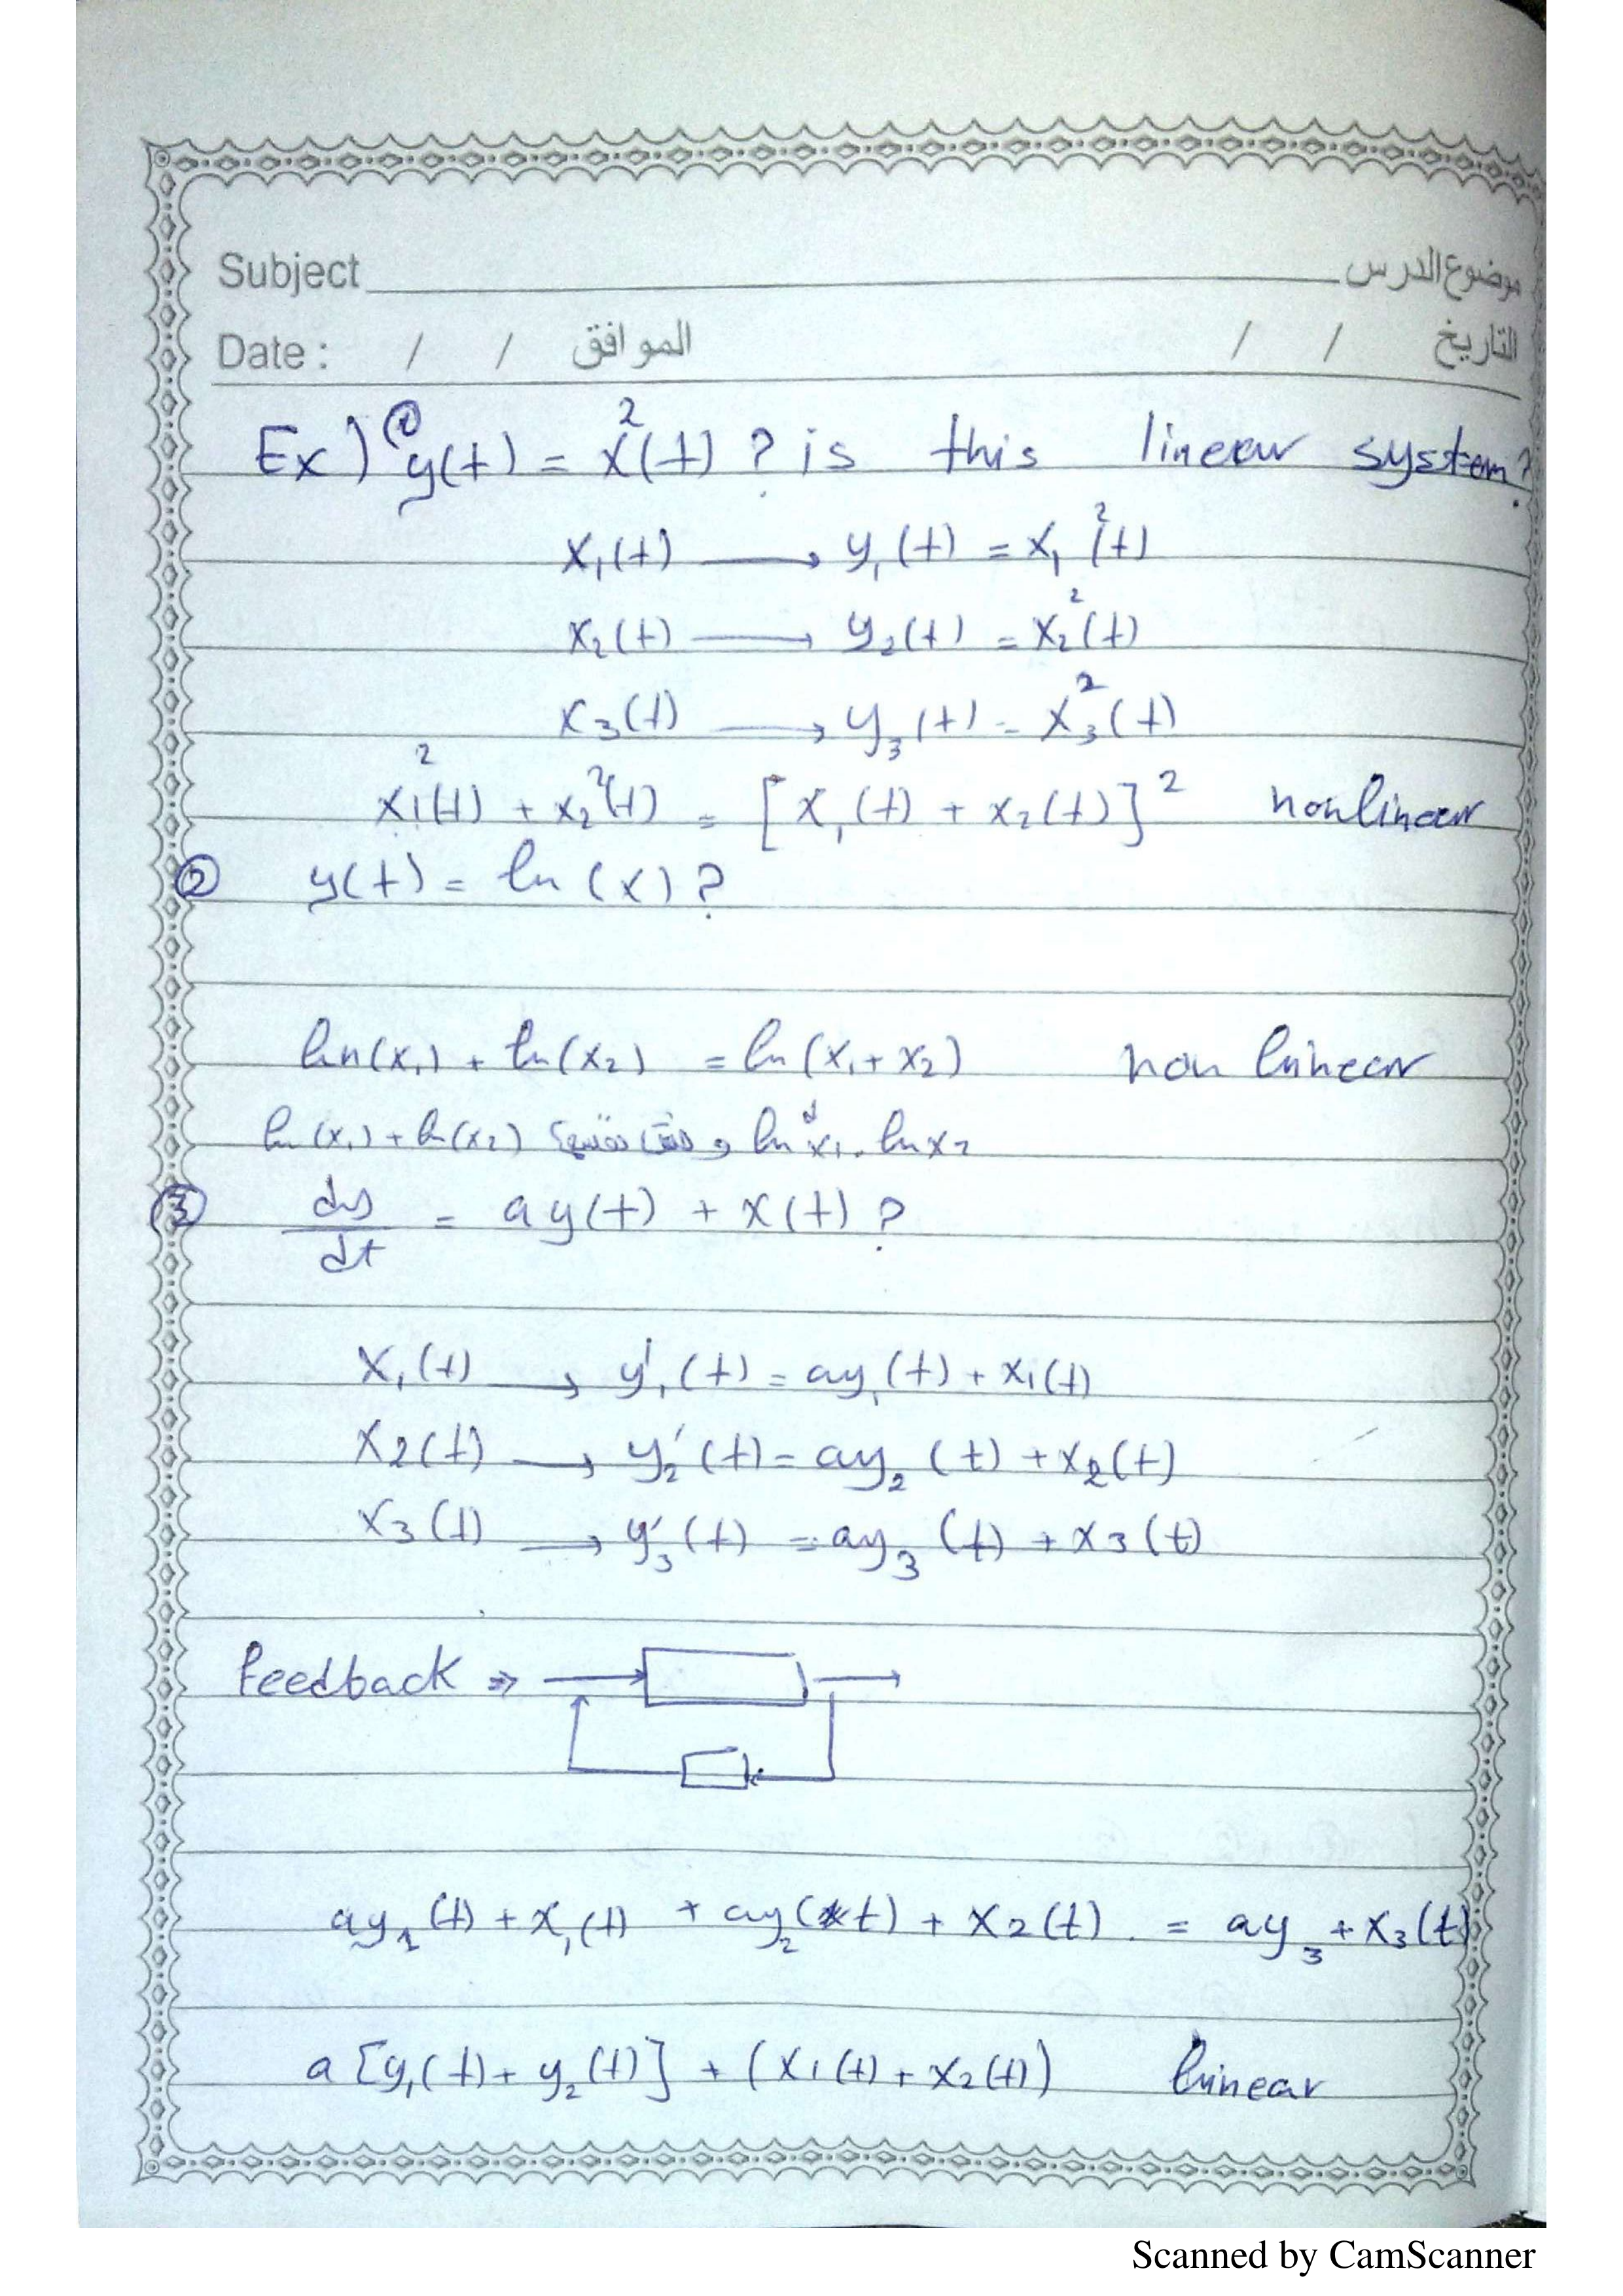 Subject موضوع الدرس
Date : / / الموافق / / التاريخ
Ex) ① y(t) = x²(t) ? is this linear system?
x₁(t) → y₁(t) = x₁²(t)
x₂(t) → y₂(t) = x₂²(t)
x₃(t) → y₃(t) = x₃²(t)
x₁²(t) + x₂²(t) = [x₁(t) + x₂(t)]² nonlinear
② y(t) = ln (x) ?
ln(x₁) + ln(x₂) = ln(x₁ + x₂) non linear
ln(x₁) + ln(x₂) ln x₁ . ln x₂
③ dy/dt = ay(t) + x(t) ?
x₁(t) → y₁'(t) = ay₁(t) + x₁(t)
x₂(t) → y₂'(t) = ay₂(t) + x₂(t)
x₃(t) → y₃'(t) = ay₃(t) + x₃(t)
feedback ⇒
ay₁(t) + x₁(t) + ay₂(t) + x₂(t) = ay₃ + x₃(t)
a [y₁(t) + y₂(t)] + (x₁(t) + x₂(t)) linear
Scanned by CamScanner